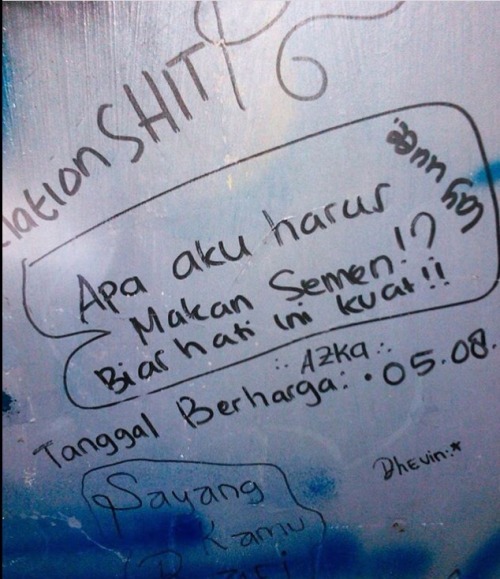 lationSHIT
Apa aku harus
Makan Semen!?
Biar hati ini kuat!!
∴ AZKA ∴
Tanggal Berharga: • 05.08.
Dhevin:*
Sayang
Kamu